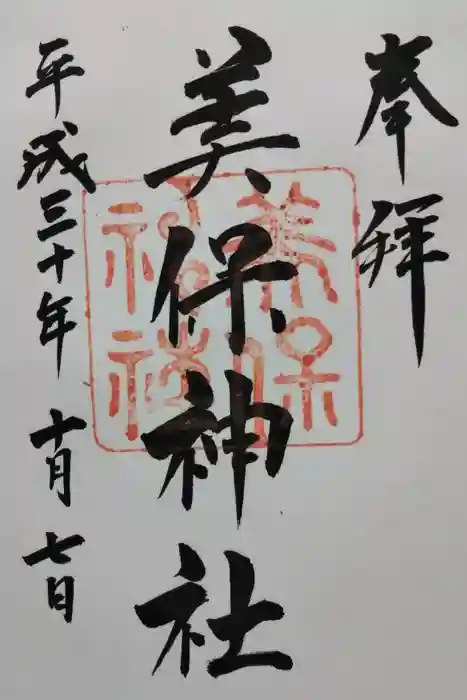 奉拝
美保神社
美保
神社
平成三十年 十月 七日